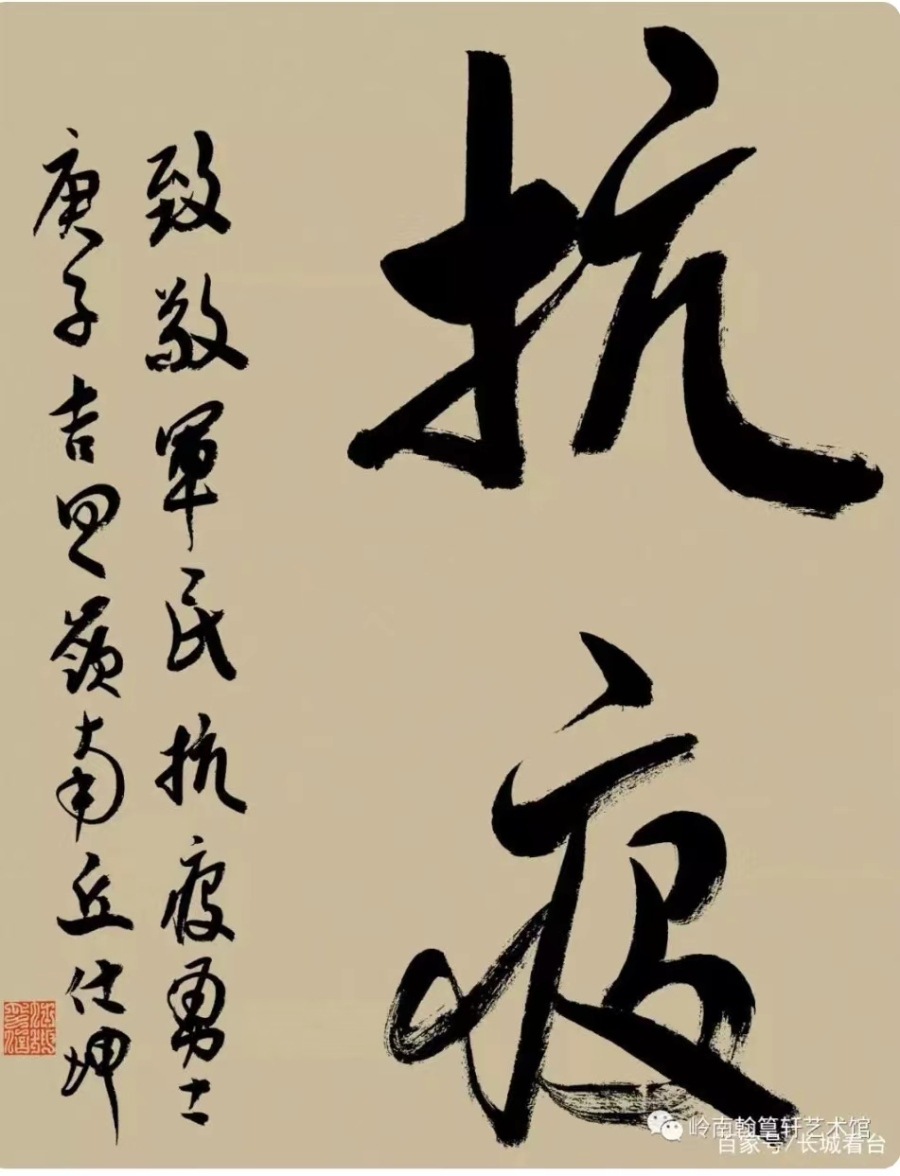 抗疫
致敬軍民抗疫勇士
庚子吉日嶺南丘仕坤
岭南翰篁轩艺术馆
百家号/长城看台